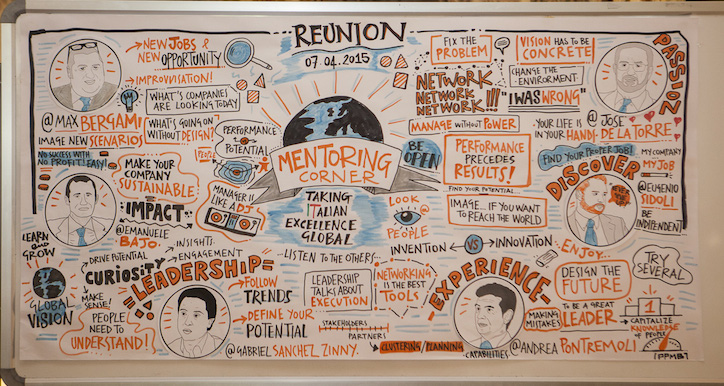 REUNION
07.04.2015
MENTORING
CORNER
TAKING
ITALIAN
EXCELLENCE
GLOBAL
...LISTEN TO THE OTHERS...
NEW JOBS &
NEW OPPORTUNITY
IMPROVISATION!
WHAT'S COMPANIES
ARE LOOKING TODAY
@MAX BERGAMI
IMAGE NEW SCENARIOS
WHAT'S GOING ON
WITHOUT DESIGN?
PERFORMANCE
POTENTIAL
PEOPLE
NO SUCCESS WITH
NO PROFIT! EASY!
MAKE YOUR
COMPANY
SUSTAINABLE
IMPACT
MANAGER IS
LIKE A DJ
@EMANUELE
BAJO
LEARN AND
GROW
DRIVE POTENTIAL
INSIGHTS
ENGAGEMENT
CURIOSITY
LEADERSHIP
GLOBAL
VISION
MAKE
SENSE!
PEOPLE
NEED TO
UNDERSTAND!
FOLLOW
TRENDS
DEFINE YOUR
POTENTIAL
@GABRIEL SANCHEZ ZINNY.
LEADERSHIP
TALKS ABOUT
EXECUTION
STAKEHOLDERS
PARTNERS
NETWORKING
IS THE BEST
TOOLS
CLUSTERING/PLANNING
CAPABILITIES
FIX THE
PROBLEM
VISION HAS TO BE
CONCRETE
NETWORK
NETWORK
NETWORK!!!
CHANGE THE
ENVIRORMENT
"I WAS WRONG"
PASSION
MANAGE WITHOUT POWER
@JOSE
DE LA TORRE
YOUR LIFE IS
IN YOUR HANDS
BE
OPEN
PERFORMANCE
PRECEDES
RESULTS!
FIND YOUR PROPER JOB!
MY COMPANY
MY JOB
DISCOVER
@EUGENIO
SIDOLI
BE
INDIPENDENT
FIND YOUR POTENTIAL
IMAGE... IF YOU WANT
TO REACH THE WORLD
LOOK
PEOPLE
INVENTION
VS
INNOVATION
ENJOY...
EXPERIENCE
DESIGN THE
FUTURE
TRY
SEVERAL
TO BE A GREAT
LEADER
MAKING
MISTAKES
1
CAPITALIZE
KNOWLEDGE
OF PEOPLE
@ANDREA PONTREMOLI